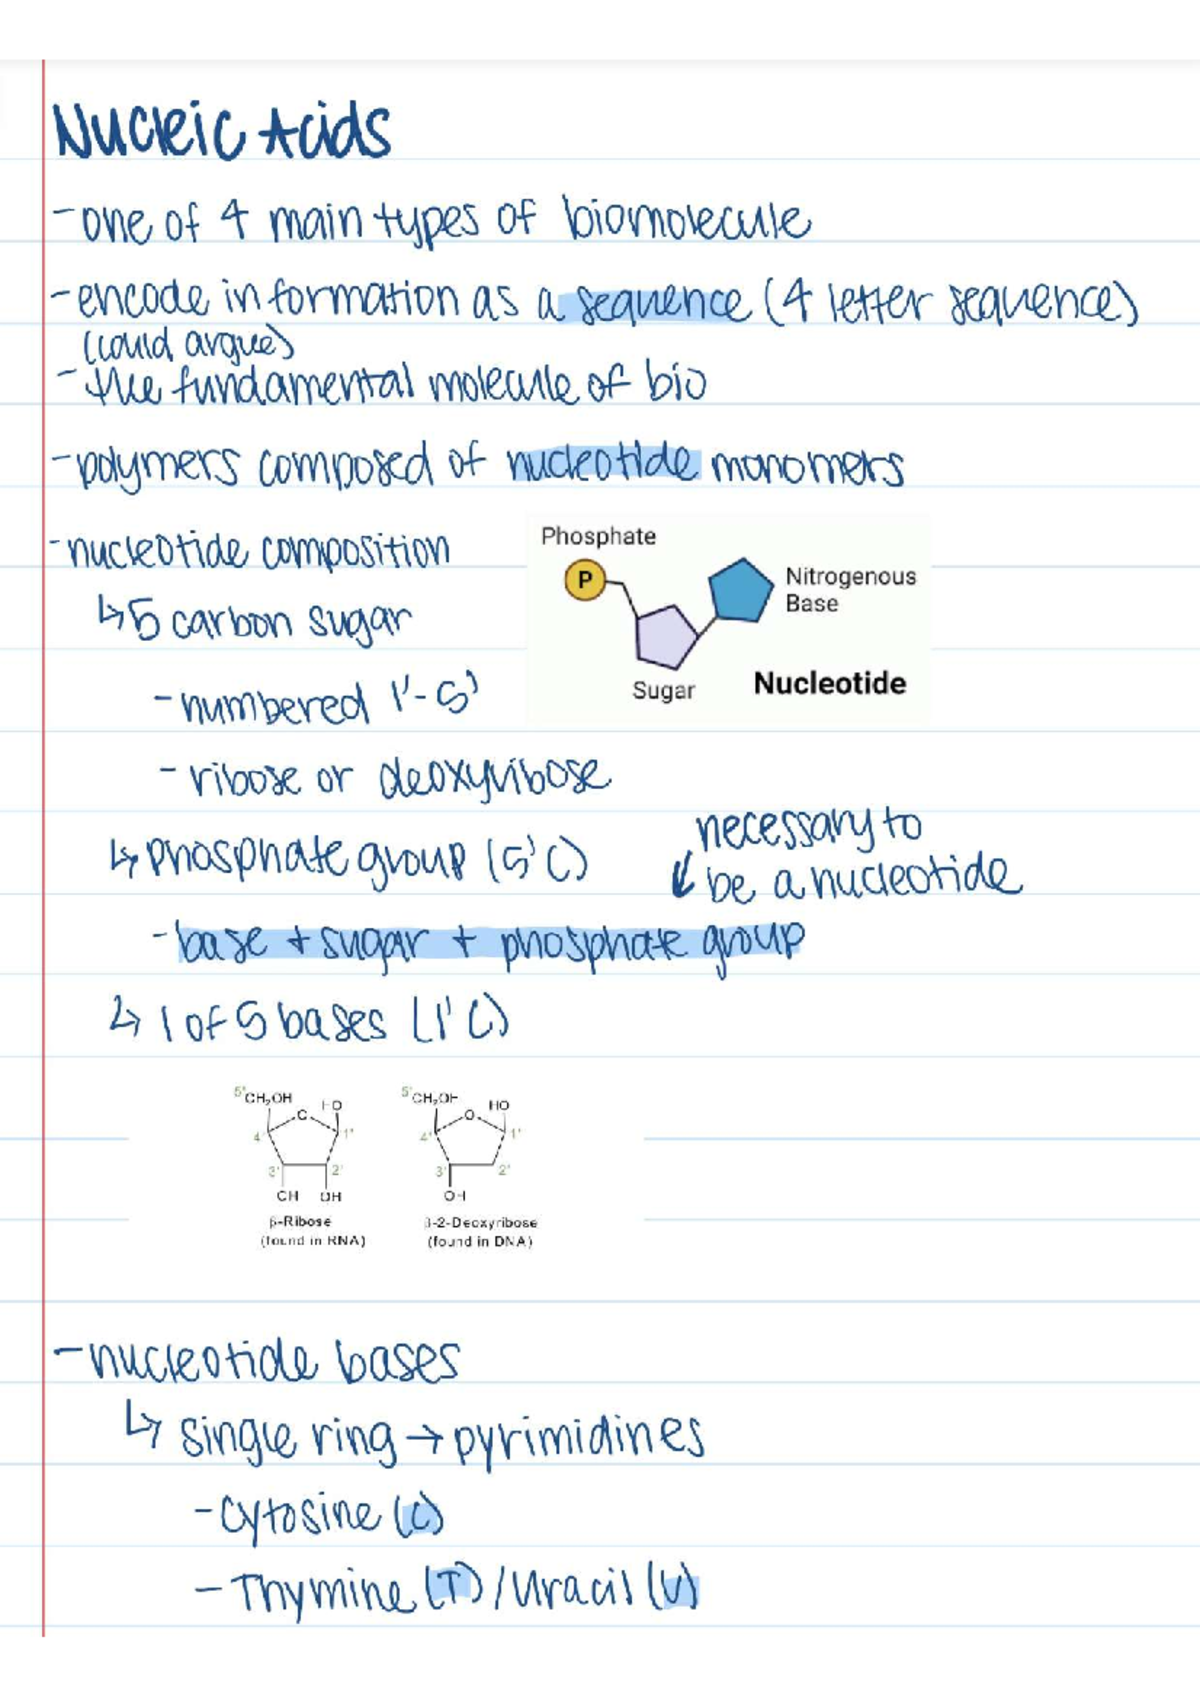 Nucleic Acids
- one of 4 main types of biomolecule
- encode information as a sequence (4 letter sequence)
(could argue)
- the fundamental molecule of bio
- polymers composed of nucleotide monomers
- nucleotide composition
Phosphate
P
Nitrogenous
Base
Sugar
Nucleotide
↳ 5 carbon sugar
- numbered 1'-5'
- ribose or deoxyribose
↳ phosphate group (5'C)
necessary to
↙ be a nucleotide
- base + sugar + phosphate group
↳ 1 of 5 bases (1'C)
5' CH₂OH HO 5' CH₂OH HO
O O
4' 1' 4' 1'
3' 2' 3' 2'
OH OH OH
β-Ribose
(found in RNA)
β-2-Deoxyribose
(found in DNA)
- nucleotide bases
↳ single ring → pyrimidines
- Cytosine (C)
- Thymine (T) / Uracil (U)